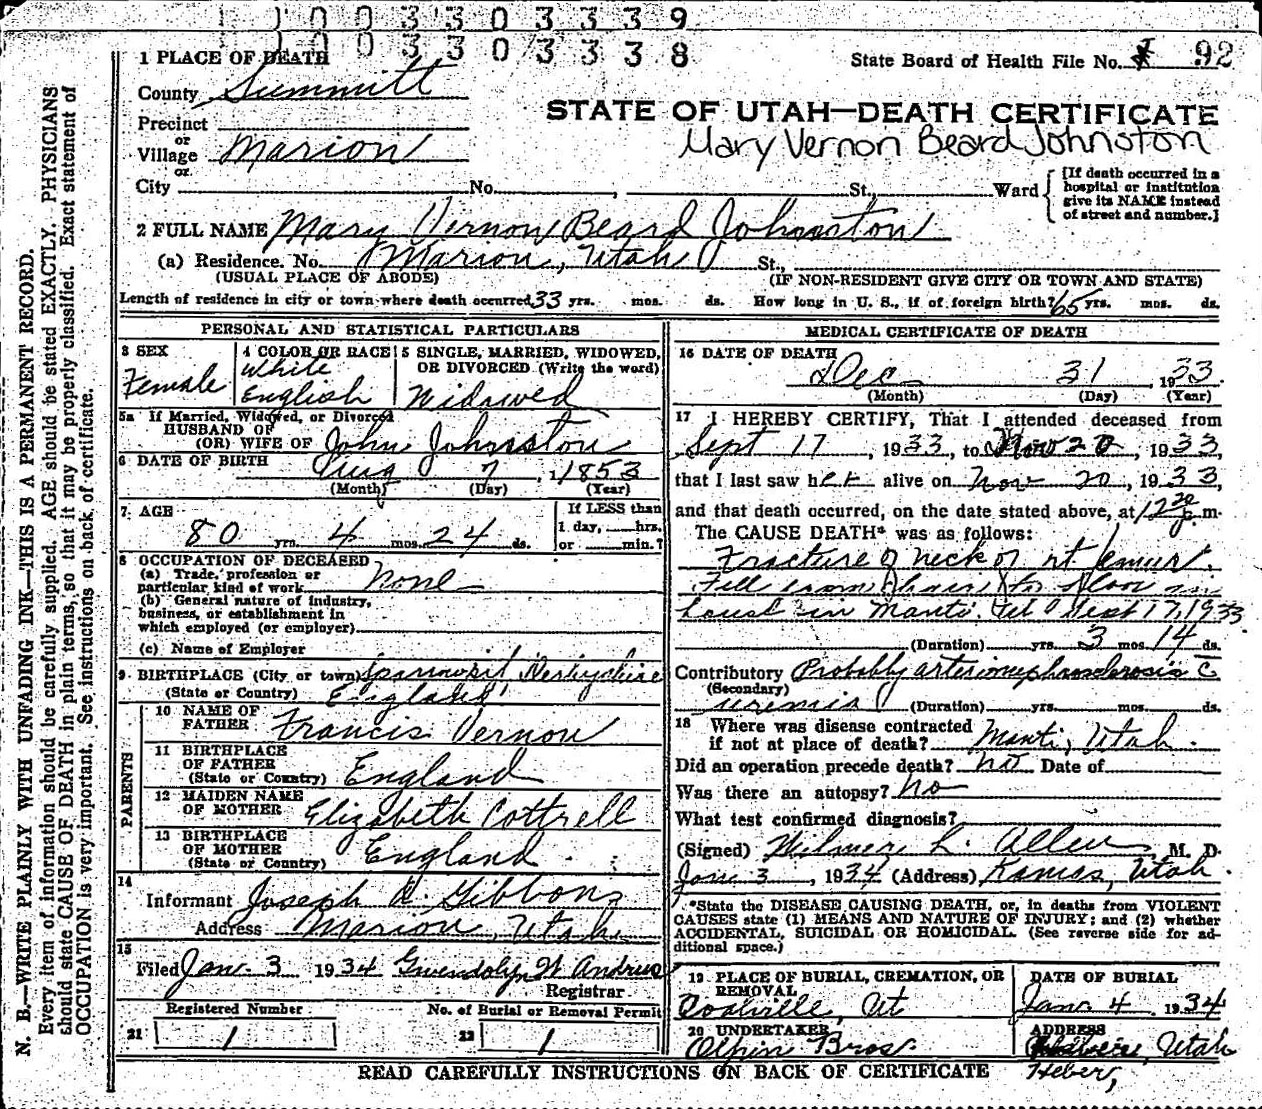 1 1 0 0 3 3 0 3 3 3 9
1 0 0 3 3 0 3 3 3 8
1 PLACE OF DEATH
State Board of Health File No. 92
County Summitt
STATE OF UTAH—DEATH CERTIFICATE
Precinct
or
Village Marion
Mary Vernon Beard Johnston
or
City No. , St., Ward
[If death occurred in a hospital or institution give its NAME instead of street and number.]
2 FULL NAME Mary Vernon Beard Johnston
(a) Residence. No. Marion, Utah St.,
(USUAL PLACE OF ABODE) (IF NON-RESIDENT GIVE CITY OR TOWN AND STATE)
Length of residence in city or town where death occurred 33 yrs. mos. ds. How long in U. S., if of foreign birth? 65 yrs. mos. ds.
PERSONAL AND STATISTICAL PARTICULARS
3 SEX
Female
4 COLOR OR RACE
White
English
5 SINGLE, MARRIED, WIDOWED, OR DIVORCED (Write the word)
Widowed
5a If Married, Widowed, or Divorced
HUSBAND OF
(OR) WIFE OF John Johnston
6 DATE OF BIRTH Aug 7, 1853
(Month) (Day) (Year)
7 AGE
80 yrs. 4 mos. 24 ds.
If LESS than
1 day, hrs.
or min.?
8 OCCUPATION OF DECEASED
(a) Trade, profession or
particular kind of work none
(b) General nature of industry,
business, or establishment in
which employed (or employer)
(c) Name of Employer
9 BIRTHPLACE (City or town)
(State or Country) England
PARENTS
10 NAME OF
FATHER Francis Vernon
11 BIRTHPLACE
OF FATHER
(State or Country) England
12 MAIDEN NAME
OF MOTHER Elizabeth Cottrell
13 BIRTHPLACE
OF MOTHER
(State or Country) England
14
Informant Joseph A. Gibbons
Address Marion, Utah
15
Filed Jan. 3 1934 Gwendolyn W Andrus
Registrar
Registered Number
21 1
No. of Burial or Removal Permit
22 1
MEDICAL CERTIFICATE OF DEATH
16 DATE OF DEATH
Dec 31, 1933
(Month) (Day) (Year)
17 I HEREBY CERTIFY, That I attended deceased from
Sept 17, 1933, to Nov 20, 1933,
that I last saw her alive on Nov 20, 1933,
and that death occurred, on the date stated above, at 12 30 p. m.
The CAUSE DEATH* was as follows:
Fracture of neck of rt femur.
Fell from chair to floor in
house in Manti. Ut Sept 17, 1933
(Duration) yrs. 3 mos. 14 ds.
Contributory Probably
(Secondary)
uremia (Duration) yrs. mos. ds.
18 Where was disease contracted
if not at place of death? Manti, Utah.
Did an operation precede death? no Date of
Was there an autopsy? no
What test confirmed diagnosis?
(Signed) Wilmer L. Allen M. D.
Jan 3, 1934 (Address) Kamas, Utah.
*State the DISEASE CAUSING DEATH, or, in deaths from VIOLENT
CAUSES state (1) MEANS AND NATURE OF INJURY; and (2) whether
ACCIDENTAL, SUICIDAL OR HOMICIDAL. (See reverse side for ad-
ditional space.)
19 PLACE OF BURIAL, CREMATION, OR
REMOVAL
Coalville, Ut
DATE OF BURIAL
Jan. 4 1934
20 UNDERTAKER
Olpin Bros.
ADDRESS
Utah
Heber,
READ CAREFULLY INSTRUCTIONS ON BACK OF CERTIFICATE
N. B.—WRITE PLAINLY WITH UNFADING INK—THIS IS A PERMANENT RECORD.
Every item of information should be carefully supplied. AGE should be stated EXACTLY. PHYSICIANS
should state CAUSE OF DEATH in plain terms, so that it may be properly classified. Exact statement of
OCCUPATION is very important. See instructions on back of certificate.